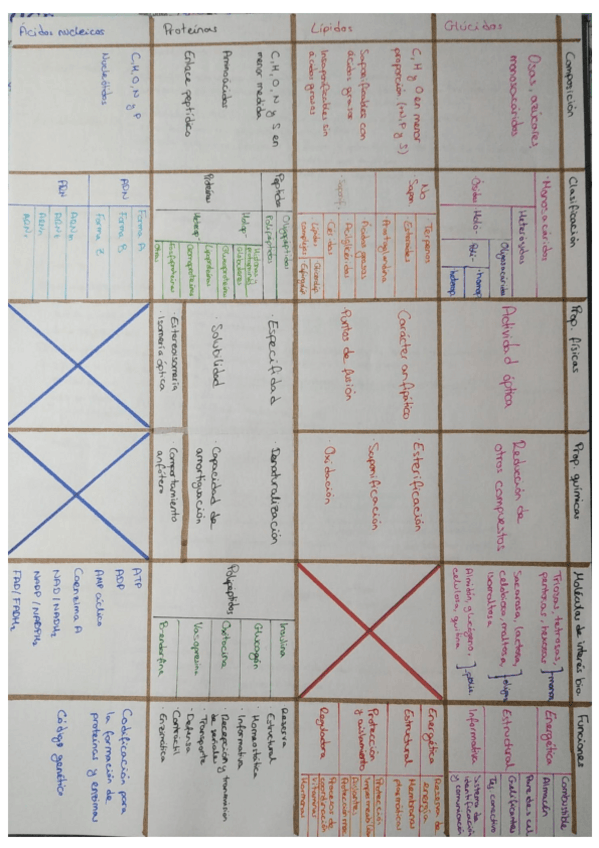 Composición
Clasificación
Prop. físicas
Prop. químicas
Moléculas de interés bio
Funciones
Glúcidos
Osas, azúcares,
monosacáridos
Monosacáridos
Ósidos
Holó-
Heterósidos
Oligosacáridos
Poli-
homop.
heterop.
Actividad óptica
Reducción de
otros compuestos
Triosas, tetrosas,
pentosas, hexosas
] mono
Sacarosa, lactosa,
celobiosa, maltosa,
isomaltosa
] oligo
Almidón, glucógeno,
celulosa, quitina
] poli
Energética
Combustible
Almacén
Estructural
Pared cel
Gelificantes
Tej. conectivo
Informativa
Sistema de
identificación
y comunicación
Lípidos
C, H y O en menor
proporción (+N, P y S)
Saponificables con
ácidos grasos
Insaponificables sin
ácidos grasos
No
Sapon.
Terpenos
Esteroides
Prostaglandina
Saponif.
Ácidos grasos
Acilglicéridos
Céridos
Lípidos
complejos
Carácter anfipático
Puntos de fusión
Esterificación
· Saponificación
· Oxidación
Energética
Reserva de
energía
Estructural
Membranas
plasmáticas
Protección
y aislamiento
Protección
Impermeabiliza
Reguladora
Vitaminas
Hormonas
Proteínas
C, H, O, N y S en
menor medida
Aminoácidos
Enlace peptídico
Péptido
Oligopéptidos
Polipéptidos
Proteína
Holop.
Heterop.
Glucoproteínas
Lipoproteínas
Cromoproteínas
Fosfoproteínas
Otras
· Especifidad
· Solubilidad
· Estereoisomería
· Isomería óptica
· Desnaturalización
· Capacidad de
amortiguación
· Comportamiento
anfótero
Polipéptidos
Insulina
Glucagón
Oxitocina
Vasopresina
B-endorfina
Reserva
Estructural
· Homeostática
· Informativa
· Recepción y transmisión
de señales
· Transporte
· Defensa
· Contráctil
· Enzimática
Ácidos nucleicos
C, H, O, N y P
Nucleótidos
ADN
Forma A
Forma B
Forma Z
ARN
ARNm
ARNt
ARNr
ATP
ADP
AMP cíclico
Coenzima A
NAD / NADH₂
NADP / NADPH₂
FAD / FADH₂
Codificación para
la formación de
proteínas y enzimas
Código genético